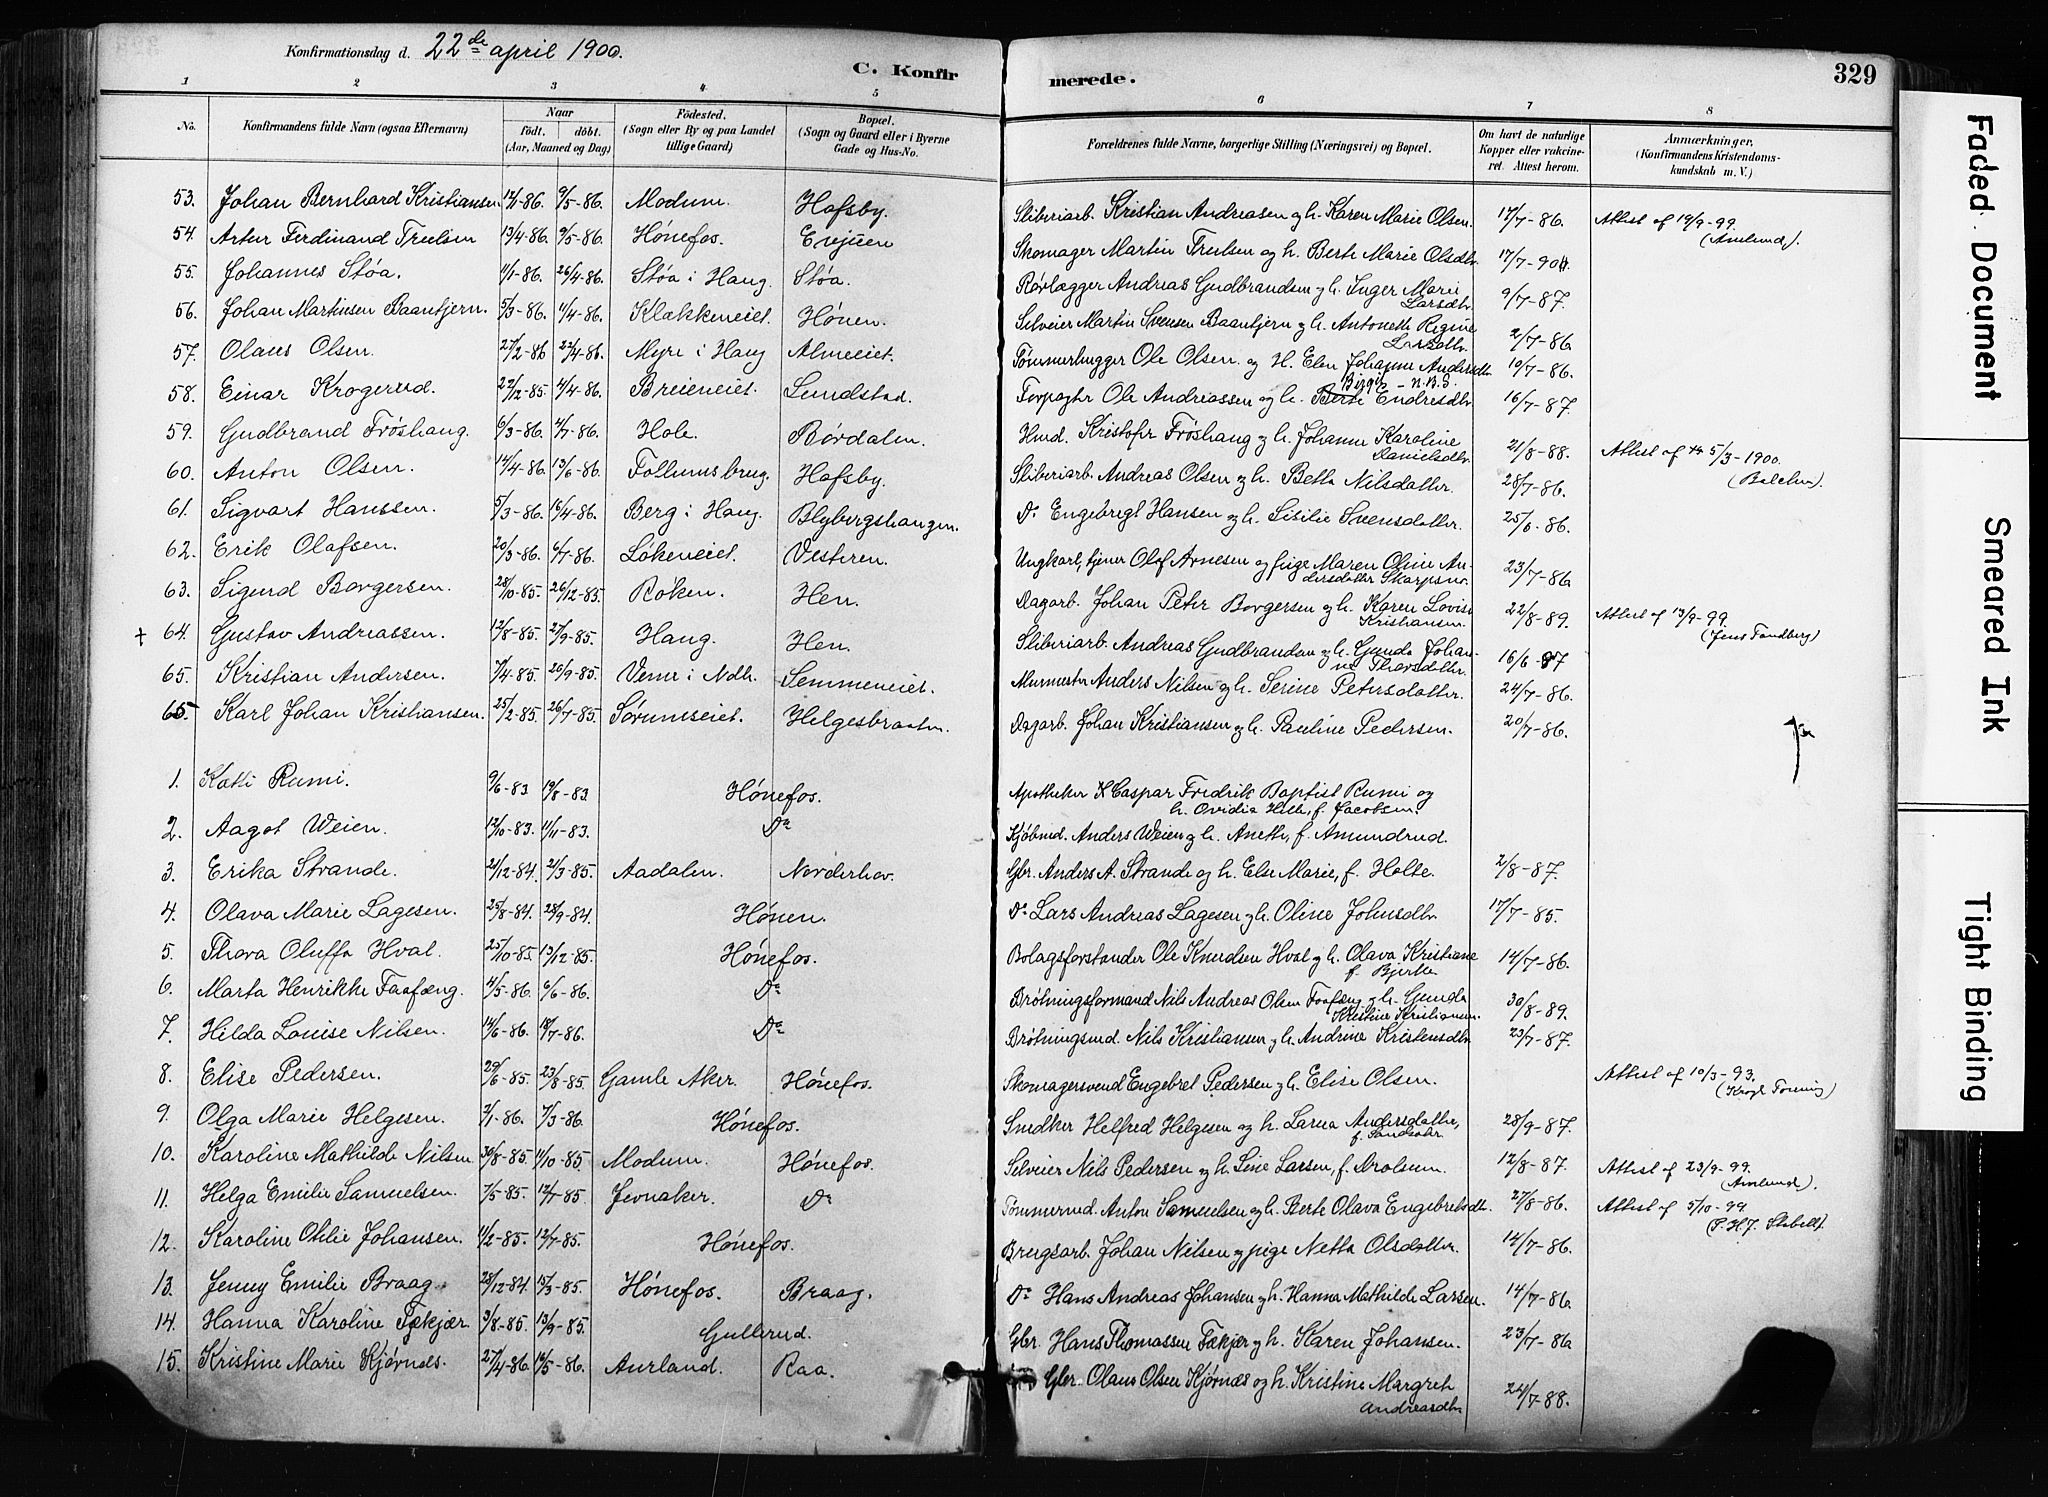 Konfirmationsdag d. 22de april 1900.
C. Konfirmerede.
329
1 2 3 4 5 6 7 8
No.
Konfirmandens fulde Navn (ogsaa Efternavn)
Naar
födt. döbt.
(Aar, Maaned og Dag)
Födested.
(Sogn eller By og paa Landet
tillige Gaard)
Bopæl.
(Sogn og Gaard eller i Byerne
Gade og Hus-No.
Forældrenes fulde Navne, borgerlige Stilling (Næringsvei) og Bopæl.
Om havt de naturlige
Kopper eller vakcine-
ret. Attest herom.
Anmærkninger.
(Konfirmandens Kristendoms-
kundskab m. V.)
53. Johan Bernhard Kristiansen. 9/5-86. Modum. Hofsby. Sliberiarb. Kristian Andreasen og h. Karen Marie Olsen. 17/7-86. Attest af 19/9-99. (Amlund).
54. Artur Ferdinand Trulsen 13/4-86. 9/5-86. Hönefos. Skomager Martin Trulsen og h. Berte Marie Olsdtr.
55. Johannes Støa. 11/1-86. 26/4-86. Støa i Haug. Støa. Rørlægger Andreas Gudbrandsen og h. Inger Marie Larsdtr. 9/7-87.
56. Johan Martinsen Baantjern. 5/3-86. 11/4-86. Klækkeneiet. Hönen. Selveier Martin Svensen Baantjern og h. Antonette Regine Larsdtr. 2/7-86
57. Olaus Olsen. 27/2-86 22/4-86. Myre i Haug Almeeiet. Tømmerhugger Ole Olsen og H. Elen Johanne Andersdtr. 10/7-86.
58. Einar Krogerud. 22/12-85. 2/4-86. Breieneiet. Lundstad. Forpagter Ole Andreassen og h. Berte Endresdtr. 16/7-87.
59. Gudbrand Fröshaug. 6/3-86. 4/7-86. Hole. Børdalen. Hmd. Kristofer Fröshaug og h. Johanne Karoline Danielsdtr. 21/8-88. Attest af 5/3-1900.
60. Anton Olsen. 14/4-86. 13/6-86. Follumsbrug. Hofsby. Sliberiarb. Andreas Olsen og h. Betta Nilsdatter. 28/7-86.
61. Sigvart Hanssen. 5/3-86. 16/4-86. Berg i Haug. Blybergshaugen. Do Engebregt Hansen og h. Sisilie Svensdatter. 25/6-86.
62. Erik Olafsen. 20/3-86. 6/7-86. Løkeneiet. Vesteren. Ungkarl, tjener Olaf Arnesen og pige Maren Oline Andersdatter Skarpsno. 23/7-86
63. Sigurd Borgersen. 28/10-85. 26/12-85. Röken. Hen. Dagarb. Johan Peter Borgersen og h. Karen Lovise Kristiansen. 22/8-89. Attest af 13/9-99. (Jens Tandberg)
+ 64. Gustav Andreassen. 12/8-85. 27/9-85. Haug. Hen. Sliberiarb. Andreas Gudbrandsen og h. Gunda Johanne Thorsdatter. 16/6-87
65. Kristian Andersen. 7/4-85. 20/9-85. Semmeneiet. Murmester Anders Nilsen og h. Serine Petersdatter. 24/7-86.
65. Karl Johan Kristiansen. 25/2-85. 26/7-85. Sørumseiet. Helgesbraaten. Dagarb. Johan Kristiansen og h. Pauline Pedersen. 20/7-86.
1. Katti Rumi. 9/6-83 19/8-83. Hönefos. Apotheker Caspar Fredrik Baptist Rumi og h. Ovidia Helle, f. Jacobsen.
2. Aagot Weien. 11/11-83. Do Kjøbmd. Anders Weien og h. Anethe, f. Amundrud.
3. Erika Strande. 21/12-84. 2/3-85. Aadalen. Norderhov. Gbr. Anders A. Strande og h. Else Marie, f. Holte. 2/8-87.
4. Olava Marie Lagesen. 25/8-84. 28/9-84. Hönen. Do Lars Andreas Lagesen og h. Oline Johnsdtr. 17/7-85.
5. Thora Oluffa Hval. 25/10-85. 13/12-85. Hönefos. Bolagsforstander Ole Knudsen Hval og h. Olava Kristiane f. Bjerke 14/7-86.
6. Marta Henrikke Faafæng. 11/5-86. 6/6-86. Do Brötningsformand Nils Andreas Olsen Faafæng og h. Gunda Kristine Kristiansen. 30/8-89.
7. Hilda Louise Nilsen. 14/6-86. 18/7-86. Do Brötningsmd. Nils Kristiansen og h. Andrine Kristensdtr. 23/7-87.
8. Elise Pedersen. 29/6-85. 23/8-85. Gamle Aker. Hönefos. Skomagersvend Engebret Pedersen og h. Elise Olsen. Attest af 10/3-93.
9. Olga Marie Helgesen. 2/1-86. 7/3-86 Hönefos. Snedker Helfred Helgesen og h. Larna Andersdatter, 28/9-87.
10. Karoline Mathilde Nilsen 30/8-85. 11/10-85. Modum. Hönefos. Selveier Nils Pedersen og h. Line Larsen, f. Drolsum. 12/8-87. Attest af 23/9-99. (Amlund).
11. Helga Emilie Samuelsen. 7/5-85. 12/7-85. Jevnaker. Do Tömmermd. Anton Samuelsen og h. Berte Olava Engebretsdtr. 27/8-86. Attest af 5/10-99.
12. Karoline Otilie Johansen. 11/2-85. 12/7-85. Hönefos. Brugsarb. Johan Nilsen og pige Netta Olsdatter. 14/7-86.
13. Jenny Emilie Braag. 28/12-84. 15/3-85. Hönefos. Braag. Do Hans Andreas Johansen og h. Hanna Mathilde Larsen. 14/7-86.
14. Hanna Karoline Fækjær. 3/8-85. 13/9-85. Gullerud. Gbr. Hans Thomassen Fækjær og h. Karen Johansen. 23/7-86
15. Kristine Marie Kjörnæs. 27/4-86. Aurland. Raa. Gbr. Olaus Olsen Kjörnæs og h. Kristine Margreth Andreasdtr. 24/7-88.
Faded Document
Smeared Ink
Tight Binding